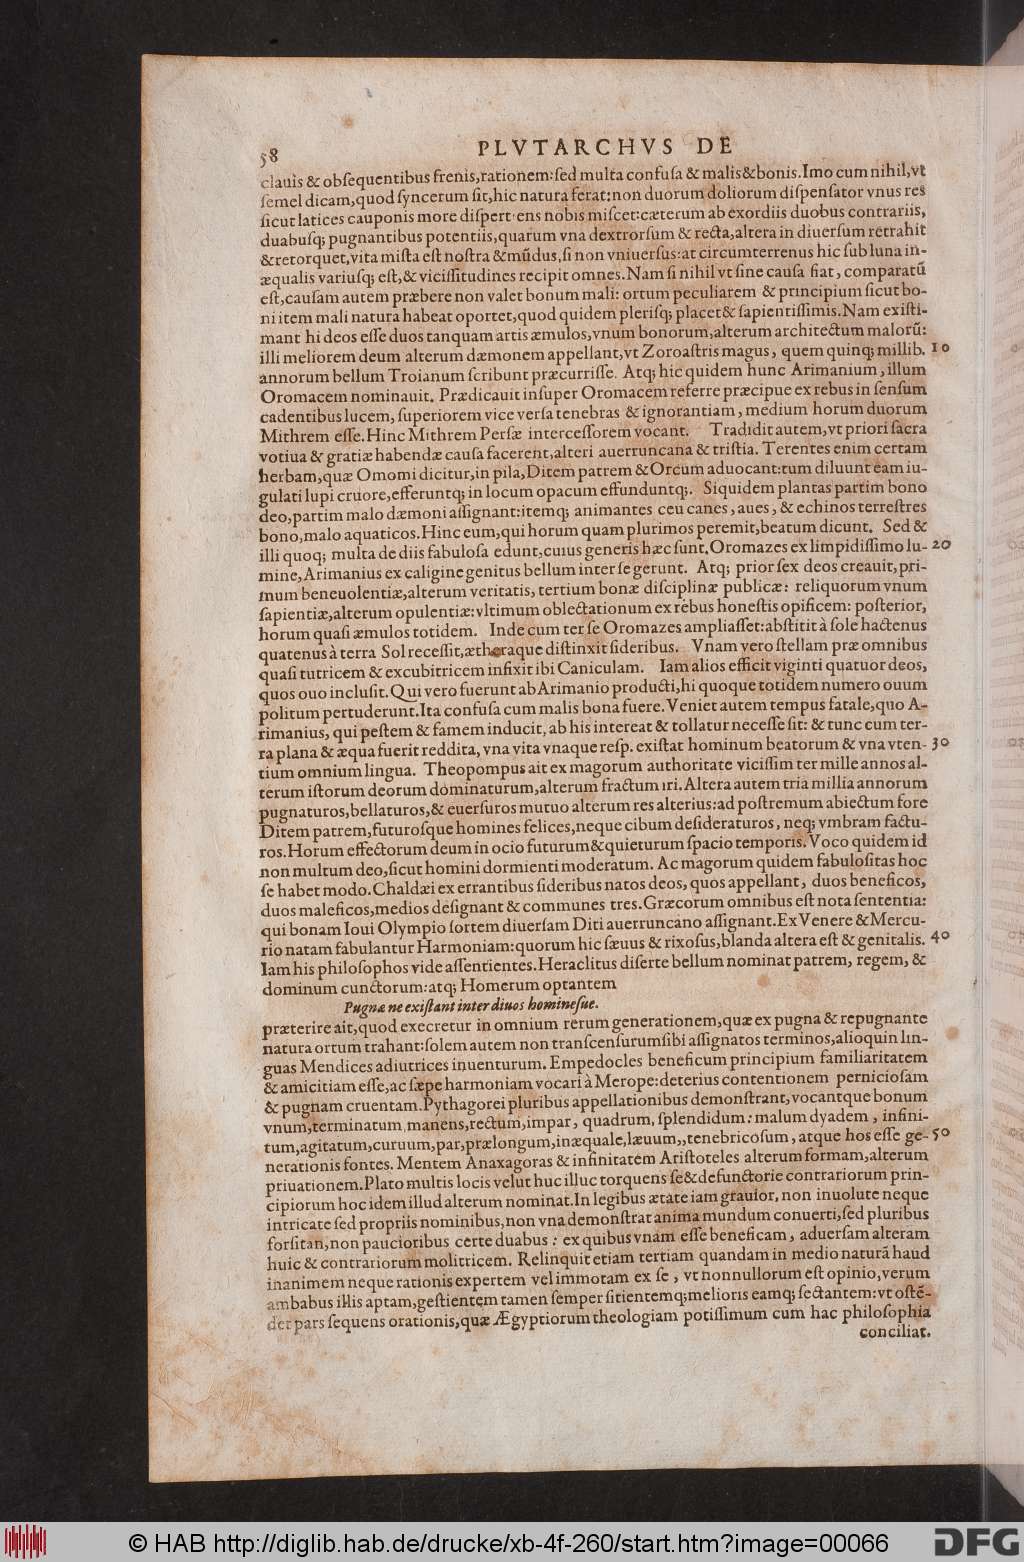 58
PLVTARCHVS DE
clauis & obſequentibus frenis,rationem:ſed multa confuſa & malis&bonis.Imo cum nihil,vt
ſemel dicam,quod ſyncerum ſit,hic natura ferat:non duorum doliorum diſpenſator vnus res
ſicut latices cauponis more diſpert ens nobis miſcet:cæterum ab exordiis duobus contrariis,
duabuſq; pugnantibus potentiis,quarum vna dextrorſum & recta,altera in diuerſum retrahit
&retorquet,vita miſta eſt noſtra &mũdus,ſi non vniuerſus:at circumterrenus hic ſub luna in-
æqualis variuſq; eſt,& viciſſitudines recipit omnes.Nam ſi nihil vt ſine cauſa fiat, comparatũ
eſt,cauſam autem præbere non valet bonum mali: ortum peculiarem & principium ſicut bo-
ni item mali natura habeat oportet,quod quidem pleriſq; placet& ſapientiſſimis.Nam exiſti-
mant hi deos eſſe duos tanquam artis æmulos,vnum bonorum,alterum architectum malorũ:
illi meliorem deum alterum dæmonem appellant,vt Zoroaſtris magus, quem quinq; millib. 10
annorum bellum Troianum ſcribunt præcurriſſe. Atq; hic quidem hunc Arimanium, illum
Oromacem nominauit. Prædicauit inſuper Oromacem referre præcipue ex rebus in ſenſum
cadentibus lucem, ſuperiorem vice verſa tenebras & ignorantiam, medium horum duorum
Mithrem eſſe.Hinc Mithrem Perſæ interceſſorem vocant. Tradidit autem,vt priori ſacra
votiua & gratiæ habendæ cauſa facerent,alteri auerruncana & triſtia. Terentes enim certam
herbam,quæ Omomi dicitur,in pila,Ditem patrem & Orcum aduocant:tum diluunt eam iu-
gulati lupi cruore,efferuntq; in locum opacum effunduntq;. Siquidem plantas partim bono
deo,partim malo dæmoni aſſignant:itemq; animantes ceu canes, aues, & echinos terreſtres
bono,malo aquaticos.Hinc eum,qui horum quam plurimos peremit,beatum dicunt. Sed &
illi quoq; multa de diis fabuloſa edunt,cuius generis hæc ſunt.Oromazes ex limpidiſſimo lu- 20
mine,Arimanius ex caligine genitus bellum inter ſe gerunt. Atq; prior ſex deos creauit,pri-
mum beneuolentiæ,alterum veritatis, tertium bonæ diſciplinæ publicæ: reliquorum vnum
ſapientiæ,alterum opulentiæ:vltimum oblectationum ex rebus honeſtis opificem: poſterior,
horum quaſi æmulos totidem. Inde cum ter ſe Oromazes ampliaſſet:abſtitit à ſole hactenus
quatenus à terra Sol receſſit,ætheraque diſtinxit ſideribus. Vnam vero ſtellam præ omnibus
quaſi tutricem & excubitricem infixit ibi Caniculam. Iam alios efficit viginti quatuor deos,
quos ouo incluſit.Qui vero fuerunt ab Arimanio producti,hi quoque totidem numero ouum
politum pertuderunt.Ita confuſa cum malis bona fuere.Veniet autem tempus fatale,quo A-
rimanius, qui peſtem & famem inducit, ab his intereat & tollatur neceſſe ſit: & tunc cum ter-
ra plana & æqua fuerit reddita, vna vita vnaque reſp. exiſtat hominum beatorum & vna vten- 30
tium omnium lingua. Theopompus ait ex magorum authoritate viciſſim ter mille annos al-
terum iſtorum deorum dominaturum,alterum fractum iri.Altera autem tria millia annorum
pugnaturos,bellaturos,& euerſuros mutuo alterum res alterius:ad poſtremum abiectum fore
Ditem patrem,futuroſque homines felices,neque cibum deſideraturos, neq; vmbram factu-
ros.Horum effectorum deum in ocio futurum&quieturum ſpacio temporis.Voco quidem id
non multum deo,ſicut homini dormienti moderatum. Ac magorum quidem fabuloſitas hoc
ſe habet modo.Chaldæi ex errantibus ſideribus natos deos, quos appellant, duos beneficos,
duos maleficos,medios deſignant & communes tres.Græcorum omnibus eſt nota ſententia:
qui bonam Ioui Olympio ſortem diuerſam Diti auerruncano aſſignant.Ex Venere & Mercu-
rio natam fabulantur Harmoniam:quorum hic ſæuus & rixoſus,blanda altera eſt & genitalis. 40
Iam his philoſophos vide aſſentientes.Heraclitus diſerte bellum nominat patrem, regem, &
dominum cunctorum:atq; Homerum optantem
Pugnæ ne exiſtant inter diuos homineſue.
præterire ait,quod execretur in omnium rerum generationem,quæ ex pugna & repugnante
natura ortum trahant:ſolem autem non tranſcenſurum ſibi aſſignatos terminos,alioquin lin-
guas Mendices adiutrices inuenturum. Empedocles beneficum principium familiaritatem
& amicitiam eſſe,ac ſæpe harmoniam vocari à Merope:deterius contentionem pernicioſam
& pugnam cruentam.Pythagorei pluribus appellationibus demonſtrant,vocantque bonum
vnum,terminatum,manens,rectum,impar, quadrum, ſplendidum: malum dyadem, infini-
tum,agitatum,curuum,par,prælongum,inæquale,læuum,,tenebricoſum, atque hos eſſe ge- 50
nerationis fontes. Mentem Anaxagoras & infinitatem Ariſtoteles alterum formam,alterum
priuationem.Plato multis locis velut huc illuc torquens ſe&defunctorie contrariorum prin-
cipiorum hoc idem illud alterum nominat.In legibus ætate iam grauior, non inuolute neque
intricate ſed propriis nominibus,non vna demonſtrat anima mundum conuerti,ſed pluribus
forſitan,non paucioribus certe duabus: ex quibus vnam eſſe beneficam, aduerſam alteram
huic & contrariorum molitricem. Relinquit etiam tertiam quandam in medio naturã haud
inanimem neque rationis expertem vel immotam ex ſe, vt nonnullorum eſt opinio,verum
ambabus illis aptam,geſtientem tamen ſemper ſitientemq;melioris eamq; ſectantem:vt oſtẽ-
det pars ſequens orationis,quæ Ægyptiorum theologiam potiſſimum cum hac philoſophia
conciliat.
© HAB http://diglib.hab.de/drucke/xb-4f-260/start.htm?image=00066
DFG